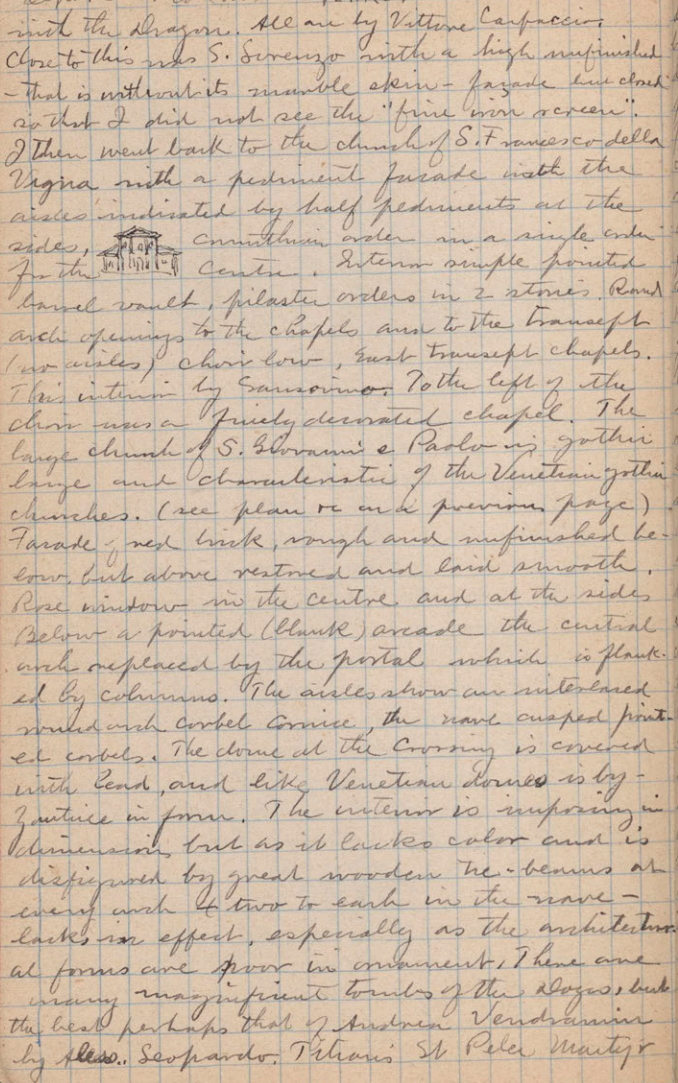 with the Dragon. All are by Vittore Carpaccio.
Close to this was S. Lorenzo with a high unfinished
- that is without its marble skin - façade but closed
so that I did not see the "fine iron screen".
I then went back to the church of S. Francesco della
Vigna with a pediment facade with the
aisles indicated by half pediments at the
sides, corinthian order in a single order
for the centre. Interior simple pointed
barrel vault, pilaster orders in 2 stories. Round
arch openings to the chapels and to the transept
(no aisles) choir low, East transept chapels.
This interior by Sansovino. To the left of the
choir was a finely decorated chapel. The
large church of S. Giovanni e Paolo is gothic
large and characteristic of the Venetian gothic
churches. (see plan on a previous page)
Facade of red brick, rough and unfinished be-
low, but above restored and laid smooth.
Rose window in the centre and at the sides
Below a pointed (blank) arcade the central
arch replaced by the portal which is flank-
ed by columns. The aisles show an interlaced
round arch corbel cornice, the nave cusped point-
ed corbels. The dome at the crossing is covered
with lead, and like Venetian domes is by-
zantine in form. The interior is imposing in
dimensions but as it lacks color and is
disfigured by great wooden tie-beams at
every arch & two to each in the nave -
lacks in effect, especially as the architectur-
al forms are poor in ornament. There are
many magnificent tombs of the Doges, but
the best perhaps that of Andrea Vendramin
by Aless. Leopardo. Titian's St Peter Martyr